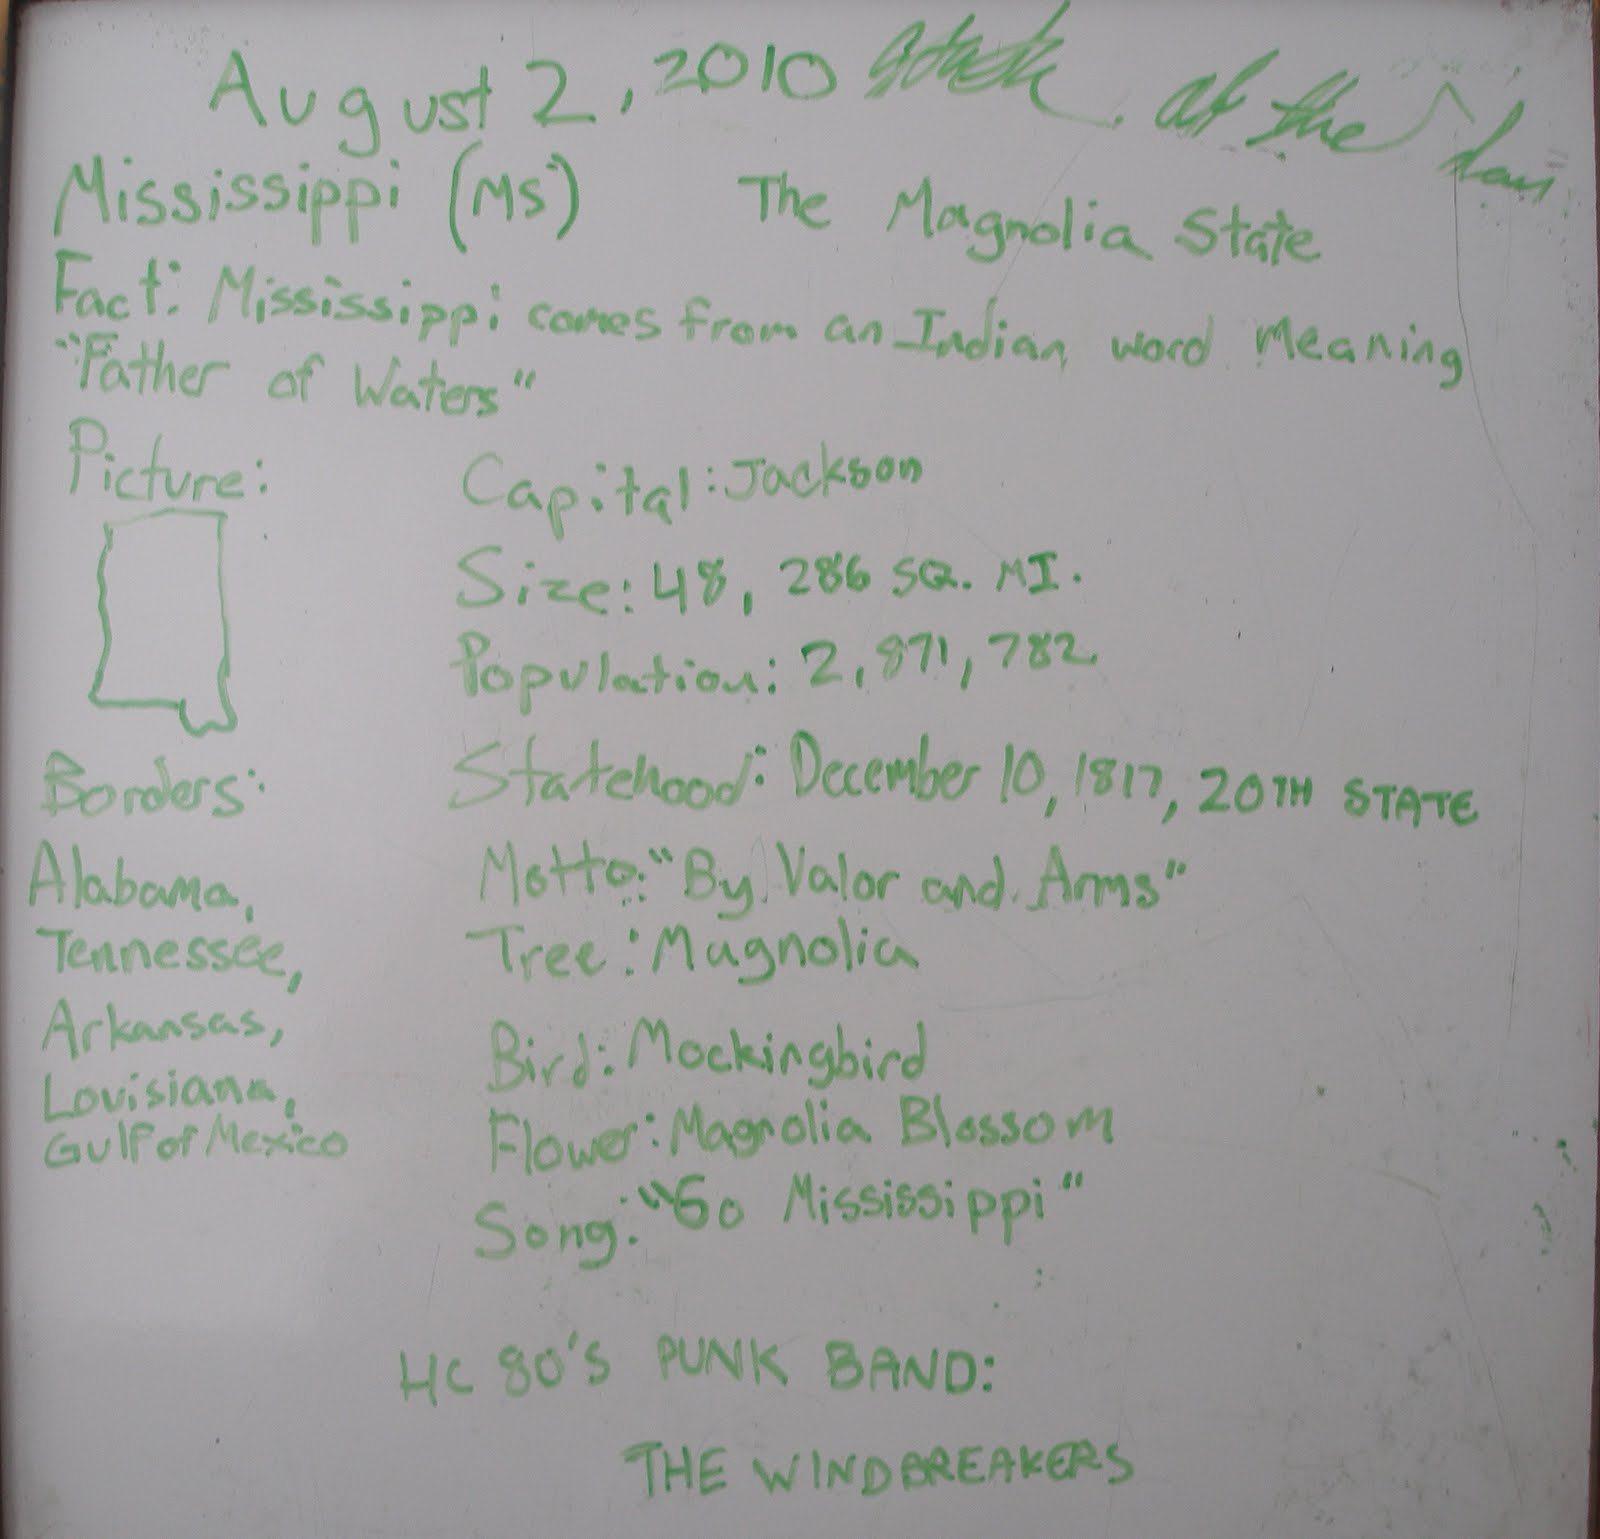 August 2, 2010 State of the day
Mississippi (MS) The Magnolia State
Fact: Mississippi comes from an Indian word meaning
"Father of Waters"
Picture:
Capital: Jackson
Size: 48,286 SQ. MI.
Population: 2,871,782
Statehood: December 10, 1817, 20TH STATE
Motto: "By Valor and Arms"
Tree: Magnolia
Bird: Mockingbird
Flower: Magnolia Blossom
Song: "Go Mississippi"
Borders:
Alabama,
Tennessee,
Arkansas,
Louisiana,
Gulf of Mexico
HC 80'S PUNK BAND:
THE WINDBREAKERS